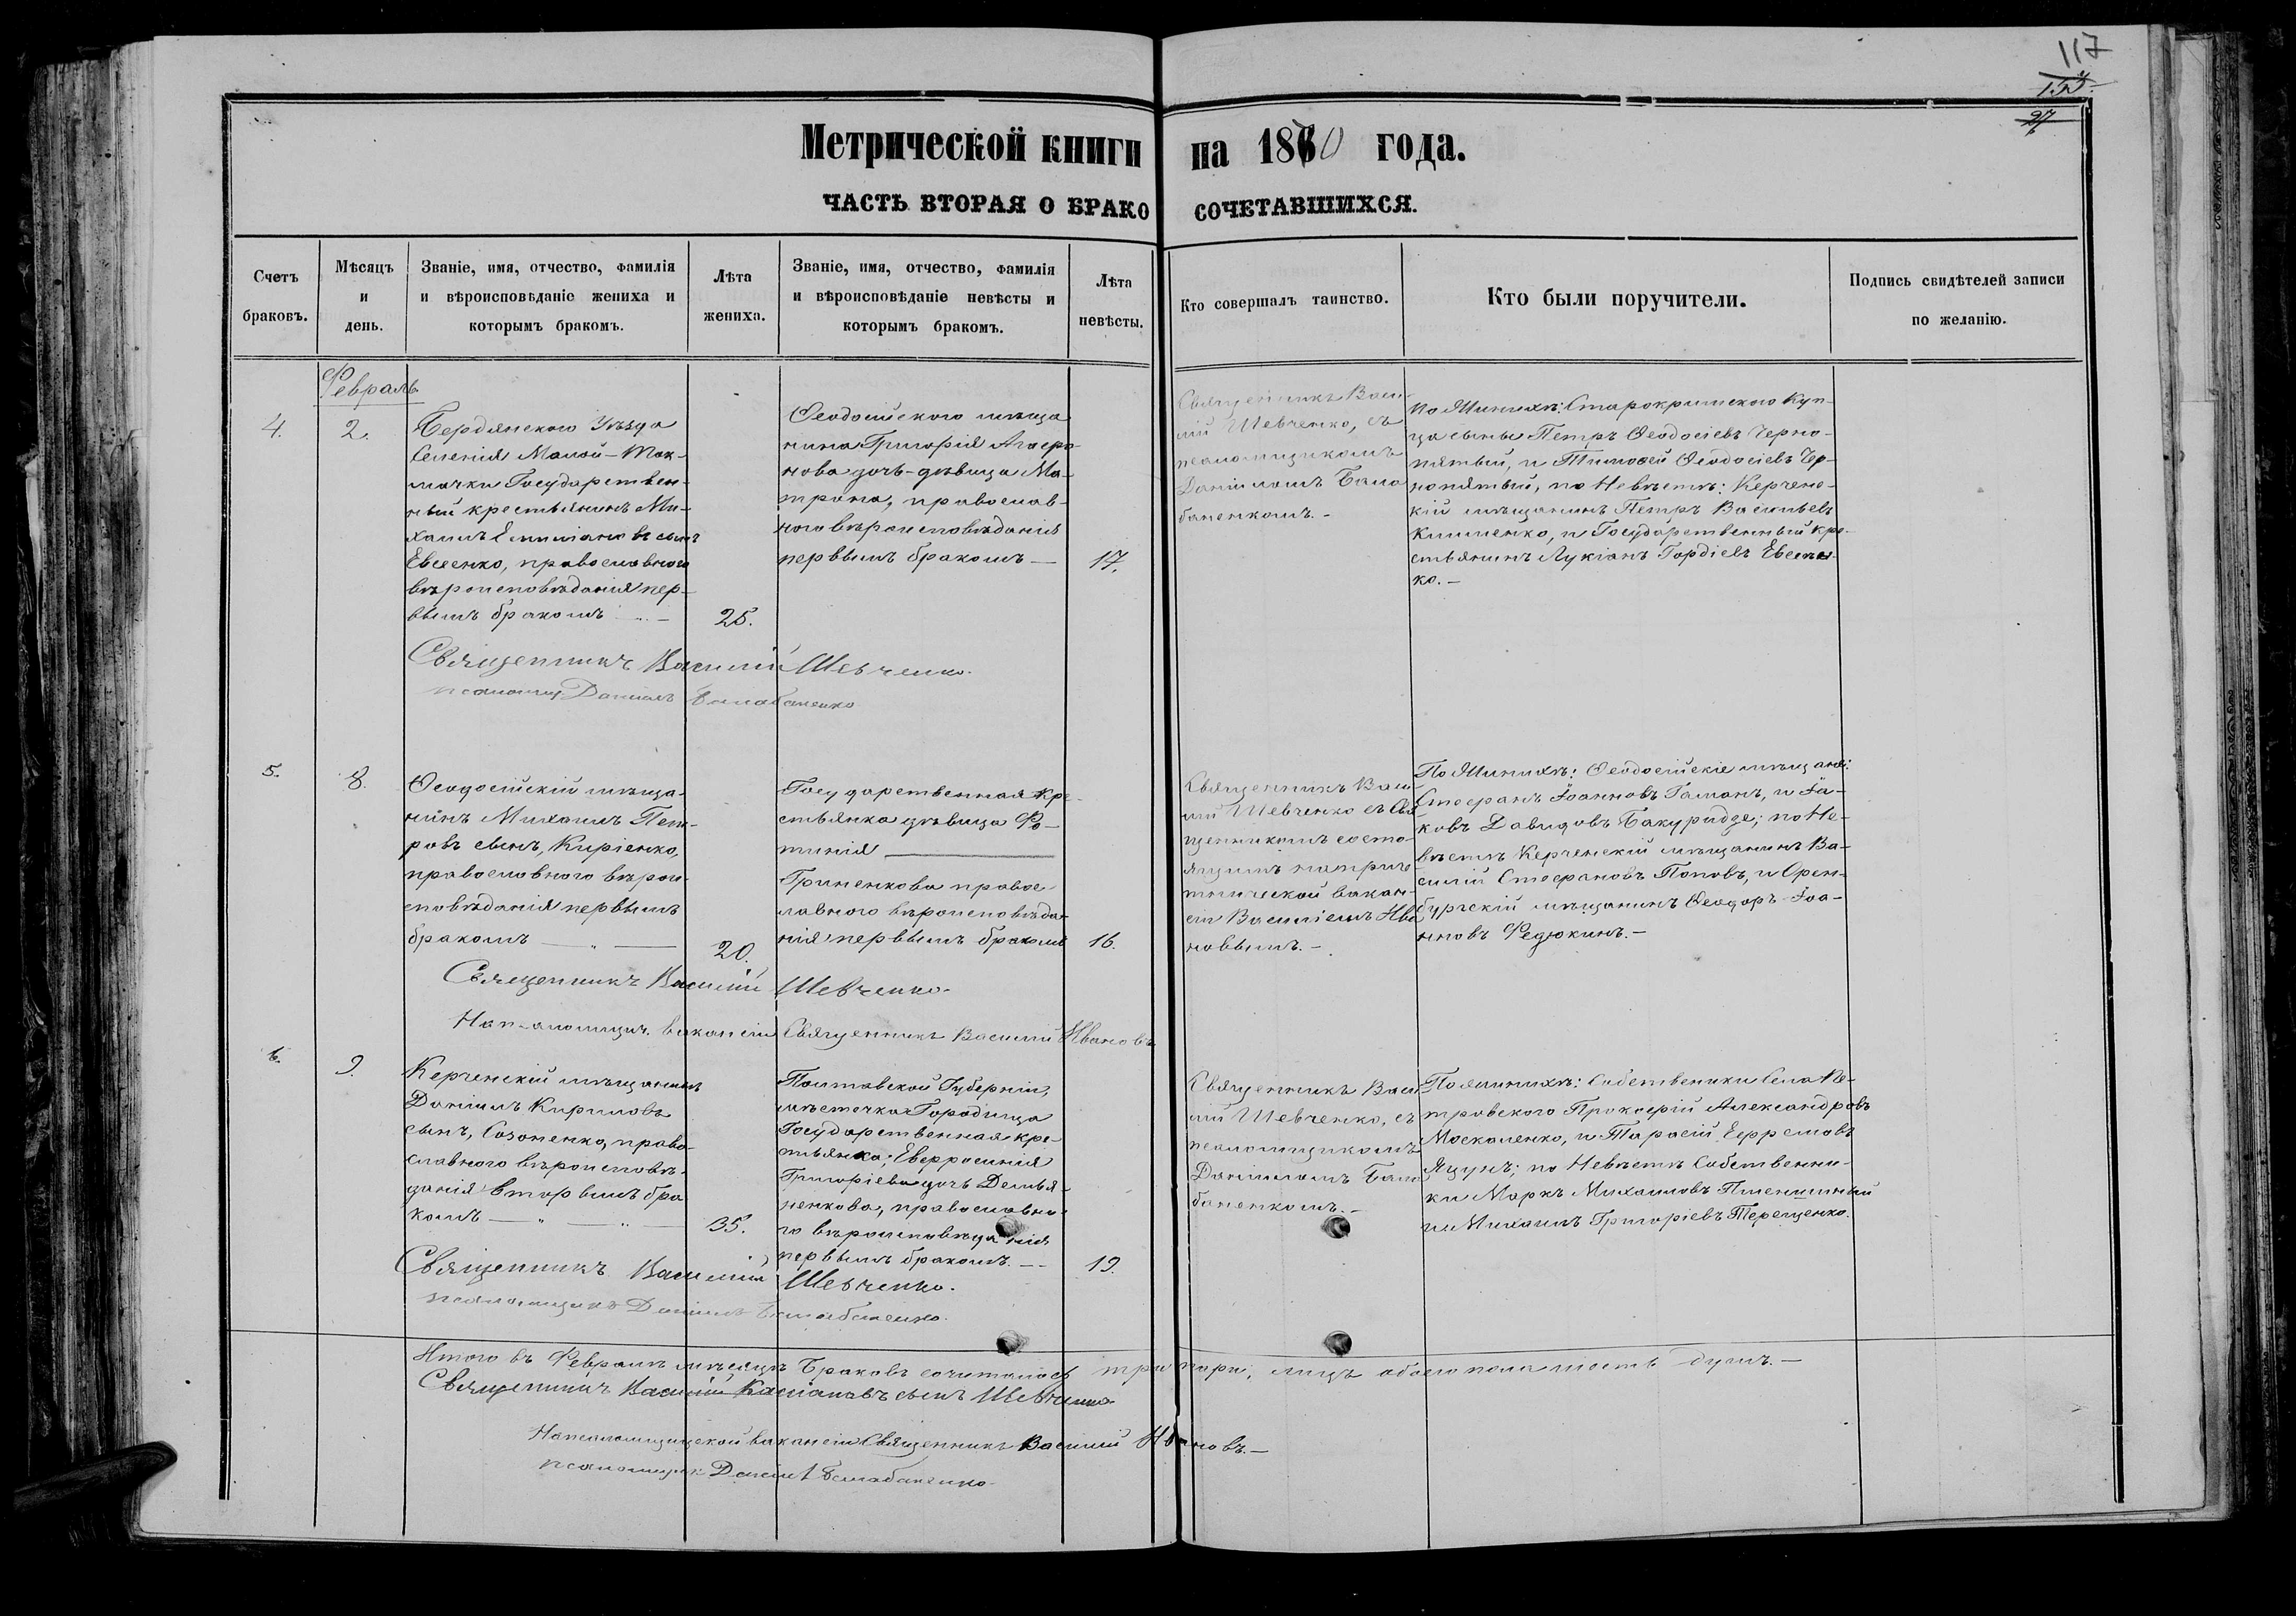 117
27
Метрической книги на 1870 года.
ЧАСТЬ ВТОРАЯ О БРАКОСОЧЕТАВШИХСЯ.
Счетъ браковъ.
Мѣсяцъ и день.
Званіе, имя, отчество, фамилія и вѣроисповѣданіе жениха и которымъ бракомъ.
Лѣта жениха.
Званіе, имя, отчество, фамилія и вѣроисповѣданіе невѣсты и которымъ бракомъ.
Лѣта невѣсты.
Кто совершалъ таинство.
Кто были поручители.
Подпись свидѣтелей записи по желанію.
Февраль
4.
2.
Бердянского Уѣзда
Селенія Малой-Ток-
мачки Государствен-
ный крестьянинъ Ми-
хаилъ Емиліановъ сынъ
Евсенко, православного
вѣроисповѣданія пер-
вымъ бракомъ
25.
Ѳеодосійского мѣща
нина Григорія
нова дочь-дѣвица Ма-
трона, православ-
ного вѣроисповѣданія
первымъ бракомъ —
17.
Священникъ Васи-
лій Шевченко, съ
псаломщикомъ
Даніиломъ Бала
баненкомъ. -
По Женихѣ: Старокрымского Куп-
ца сыны Петръ Ѳеодосіевъ Черно-
пятый, и Тимофей Ѳеодосіевъ Чер-
нопятый, по Невѣстѣ: Керченс-
кій мѣщанинъ Петръ Васильевъ
Клименко, и Государственный кре-
стьянинъ Лукіанъ Гордіевъ Евсен-
ко. —
Священникъ Василій Шевченко.
псаломщ Даніилъ Балабаненко
5.
8.
Ѳеодосійскій мѣща-
нинъ Михаилъ Пет-
ровъ сынъ, Киріенко,
православного вѣрои-
сповѣданія первымъ
бракомъ
20.
Государственная кре-
стьянка дѣвица Фо-
тинія
Гриненкова правос-
лавного вѣроисповѣда-
нія первымъ бракомъ
16.
Священникъ Васи-
лій Шевченко съ Свя
щенникомъ состо-
ящимъ
вакан-
сіи Василіемъ Ива
новымъ. -
По Женихѣ: Ѳеодосійскіе мѣщане:
Стефанъ Іоанновъ Гаманъ, и Іа-
ковъ Давидовъ Бакуридзе; по Не-
вѣстѣ Керченскій мѣщанинъ Ва-
силій Стефановъ Поповъ, и Орен-
бургскій мѣщанинъ Ѳеодоръ Іоа-
нновъ Федюкинъ. —
Священникъ Василій Шевченко.
На псаломщич. вакансіи Священникъ Василій Ивановъ
6.
9.
Керченскій мѣщанинъ
Даніилъ Кириловъ
сынъ, Созоненко, право-
славного вѣроисповѣ-
данія вторымъ бра
комъ
35.
Полтавской Губерніи,
мѣстечка Городища
Государственная кре-
стьянка, Евфросинія
Григоріева дочь Демья-
ненкова, православно-
го вѣроисповѣданія
первымъ бракомъ. —
19.
Священникъ Васи
лій Шевченко, съ
псаломщикомъ
Даніиломъ Бала
баненкомъ. -
По женихѣ: Собственики Села Пе-
тровского Прокофій Александровъ
Москаленко, и Тарасій Ефремовъ
Яцунъ; по Невѣстѣ Собственни-
ки Маркъ Михаиловъ Пшеничный
и Михаилъ Григоріевъ Терещенко.
Священникъ Василій Шевченко.
псаломщикъ Даніилъ Балабаненко.
Итого въ Февралѣ мѣсяцѣ Браковъ сочиталось три пари, лицъ обоего пола шесть душъ. —
Священникъ Василій Касіановъ сынъ Шевченко
На псаломщицской вакансіи Священникъ Василій Ивановъ. —
псаломщикъ Даніилъ Балабаненко